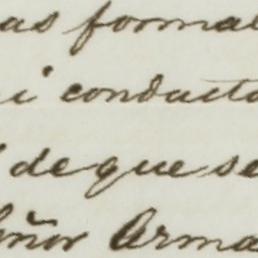 as formal
i conducto
de que se
eñor Arma